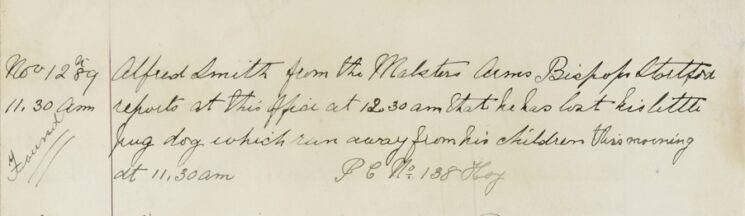 Nov 12th 89 Alfred Smith from the Malsters Arms Bishops Stortford
11.30 am reports at this office at 12.30 am that he has lost his little
Found pug dog which run away from his children this morning
at 11.30 am P C No. 138 Hoy